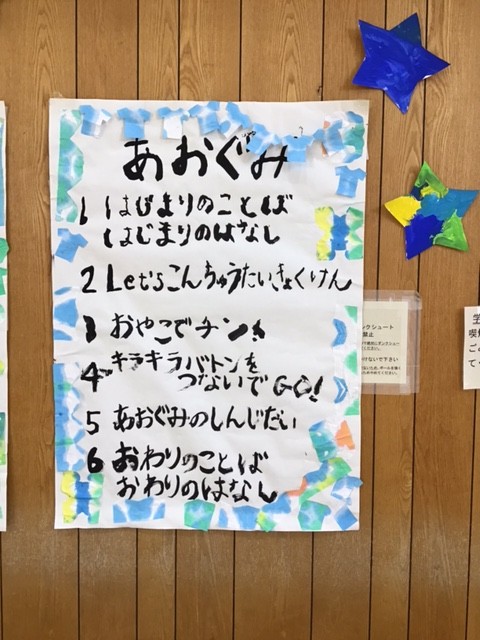 あおぐみ
1 はじまりのことば
はじまりのはなし
2 Let'sこんちゅうたいきょくけん
3 おやこでチン!
4 キラキラバトンを
つないでGO!
5 あおぐみのしんじだい
6 おわりのことば
おわりのはなし
ンクシュート
禁止
けないで下さい